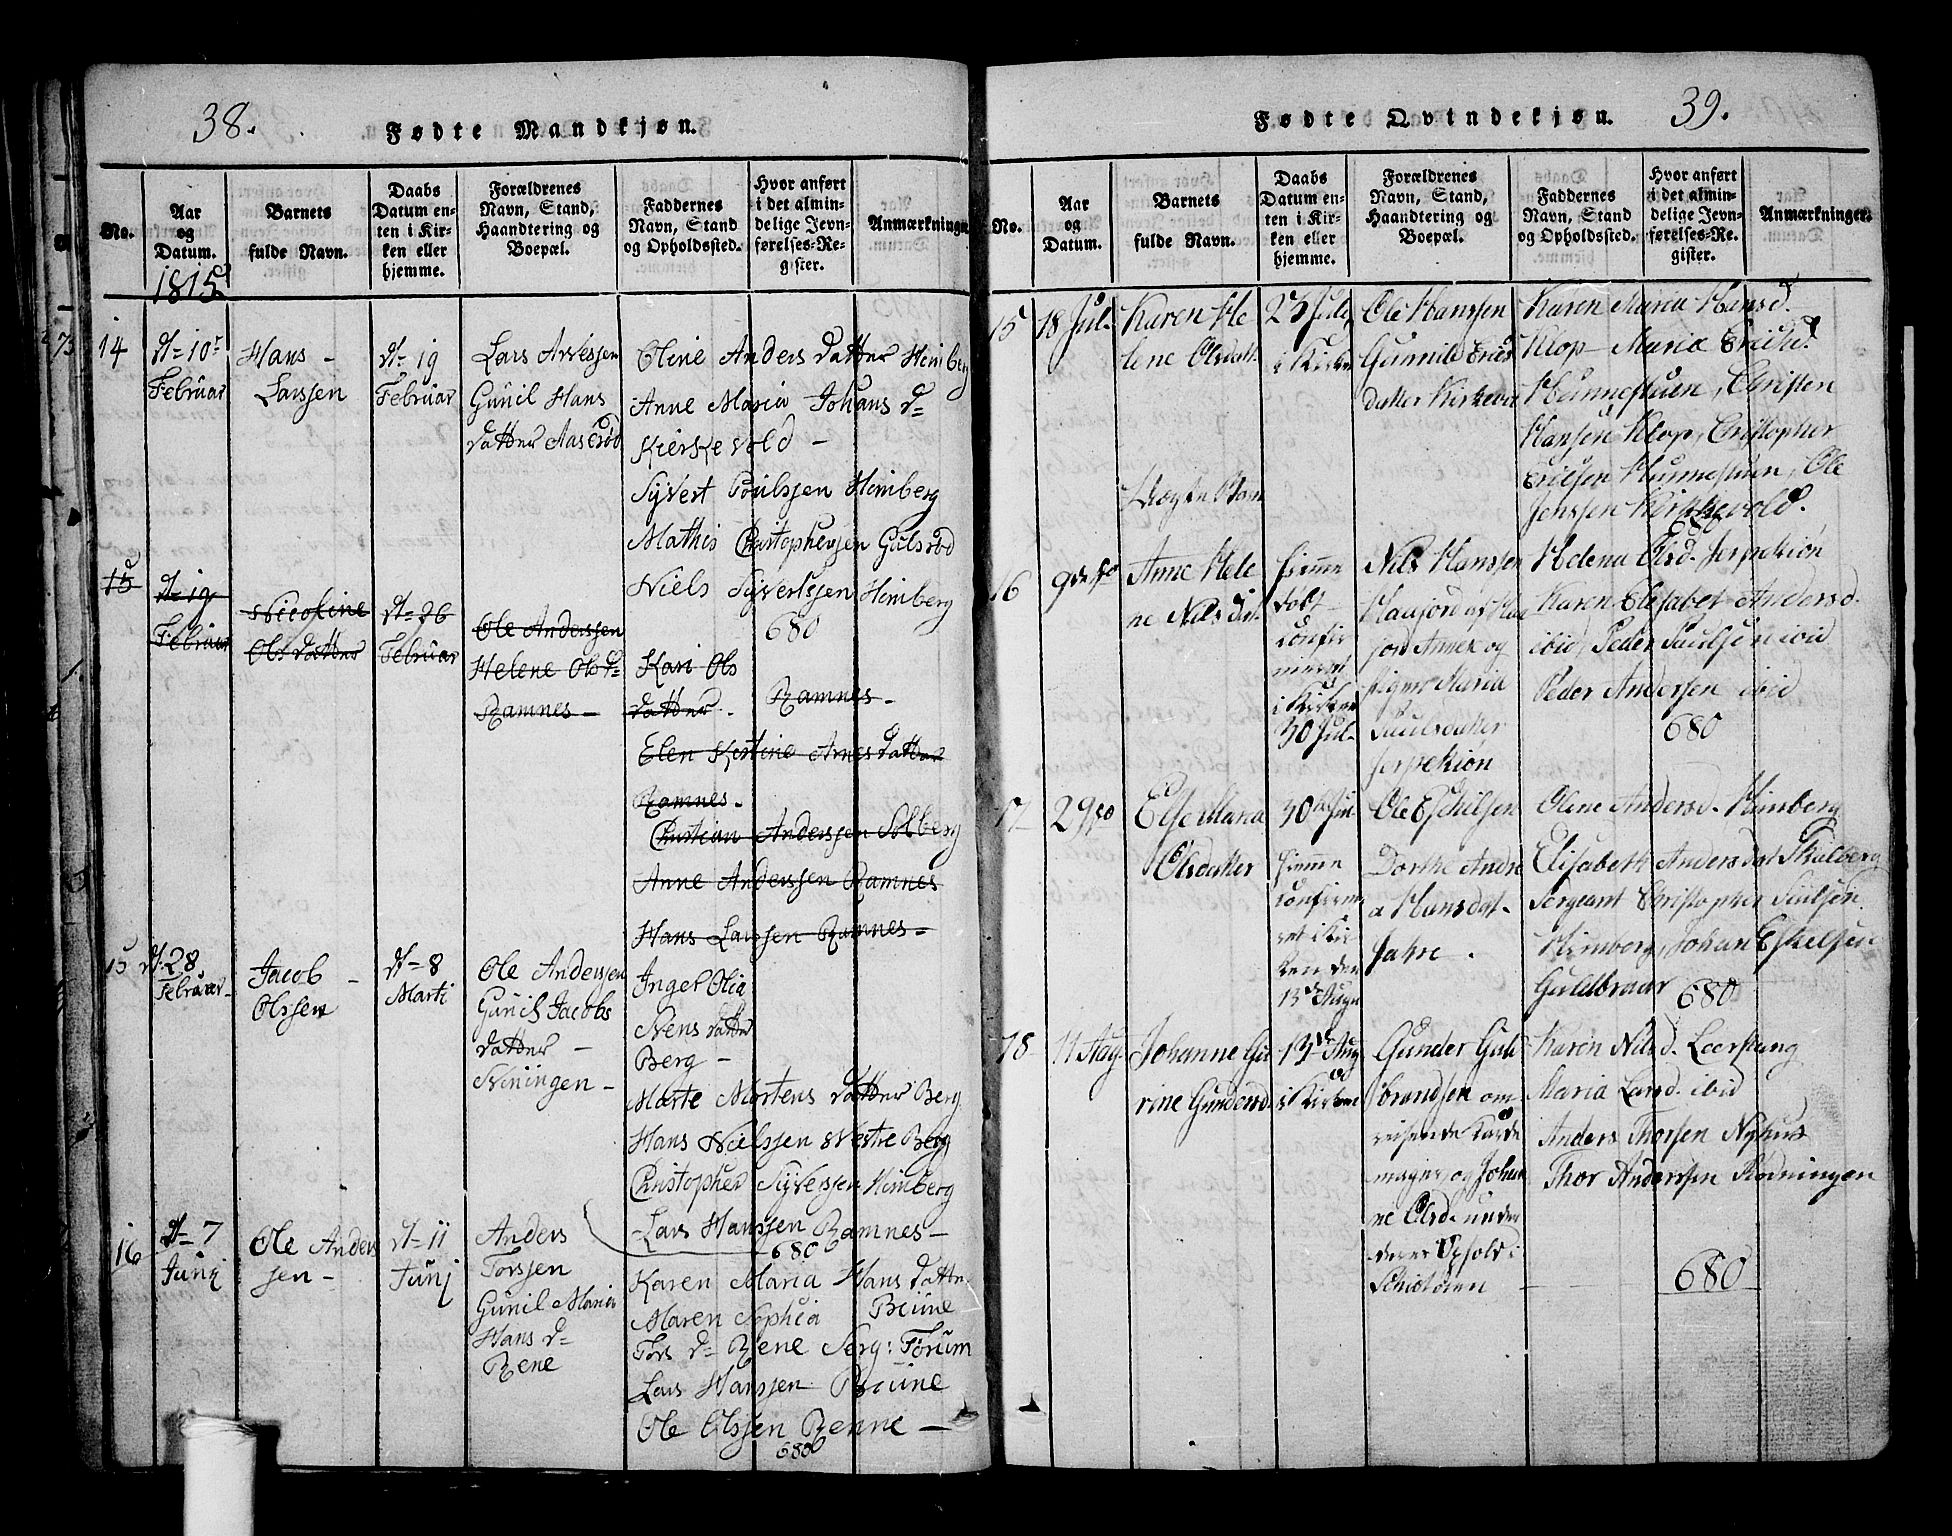 38.
Fødte Mandkjøn.
No.
Aar og Datum.
Barnets fulde Navn.
Daabs Datum enten i Kirken eller hjemme.
Forældrenes Navn, Stand, Haandtering og Boepæl.
Faddernes Navn, Stand og Opholdssted.
Hvor anført i det almindelige Jevnførelses-Register.
Anmærkninger
1815
14
d= 10
Februar
Hans -
Larssen
d= 19
Februar
Lars
Gunil Hans
datter Aaserød
Oline Anders datter Himberg
Anne Maria Johans d=
Kierkevold -
Syvert Poulssen Himberg
Mathis Christophersen Gulsrød
Niels Syvertssen Himberg
680
15
d= 19
Februar
Nicoline
Ols datter
d= 26
Februar
Ole Anderssen
Helene Ols d=
Ramnes -
Kari Ols
datter -
Ramnes -
Elen Kirstine Arnes datter
Ramnes -
Christian Anderssen Solberg
Anne Anderssen Ramnes
Hans Larssen Ramnes -
15
d. 28
Februar
Jacob -
Olssen
d= 8
Marti
Ole Anderssen
Gunil Jacobs
datter -
Inger Olia
datter
Berg -
Marte Mortens datter Berg
Hans Nielssen Vestre Berg
Christopher Syverssen Himberg
Lars Hanssen Ramnes -
680
16
d= 7
Junj
Ole Anders
sen -
d= 11
Junj
Anders
Torssen
Gunil Maria
Hans d=
Rene
Karen Maria Hans datter
Maren Sophia Bruune
Tors d= Rene Serg: Forum
Lars Hanssen Bruune
Ole Olssen Renne -
680
39.
Fødte Qvindekjøn.
No.
Aar og Datum.
Barnets fulde Navn.
Daabs Datum enten i Kirken eller hjemme.
Forældrenes Navn, Stand, Haandtering og Boepæl.
Faddernes Navn, Stand og Opholdssted.
Hvor anført i det almindelige Jevnførelses-Register.
Anmærkninger.
15
18 Jul.
Karen He
lene Olsdatt.
23 Julii
i Kirken
Ole Hanssen
Gunnild Erics
datter Kirkevol
Karen Maria Hansd.
Klop - Maria Ericsd.
Hunnestuen, Christen
Hansen Klop, Cristopher
Ericsen Hunnestuen, Ole
Jenssen Kirkevold.
680
16
9de
Anne Hele
ne Nilsdat.
hiemme
døbt
confir
meret
i Kirken
30 Jul.
Nils Hanssen
Annex og
pigen Maria
Paulsdatter
Helena Olsd.
Karen Elisabet Andersd.
ibid, Peder Paulsen ibid
Peder Andersen ibid
680
17
29
Else Maria
Olsdatter
30 Jul
hiemme
confirme
ret i Kir
ken den
13de Augu
Ole Eskilsen
Dorthe Andre
a Hansdat.
Jahre.
Olene Andersd. Himberg
Elisabeth Andersdat
Sergeant Christopher
Himberg, Johan Eskelsen
680
18
11 Aug.
Johanne Gu
rine Gundersd.
13de Aug
i Kirken
Gunder Guld
brandsen om
reisende Karde
mager og Johan
ne Olsd. under
deres Ophold i
Karen Nilsd. Leerstang
Maria Larsd. ibid
Anders Thorsen Nyhus
Thor Anderssen Rødningen
680